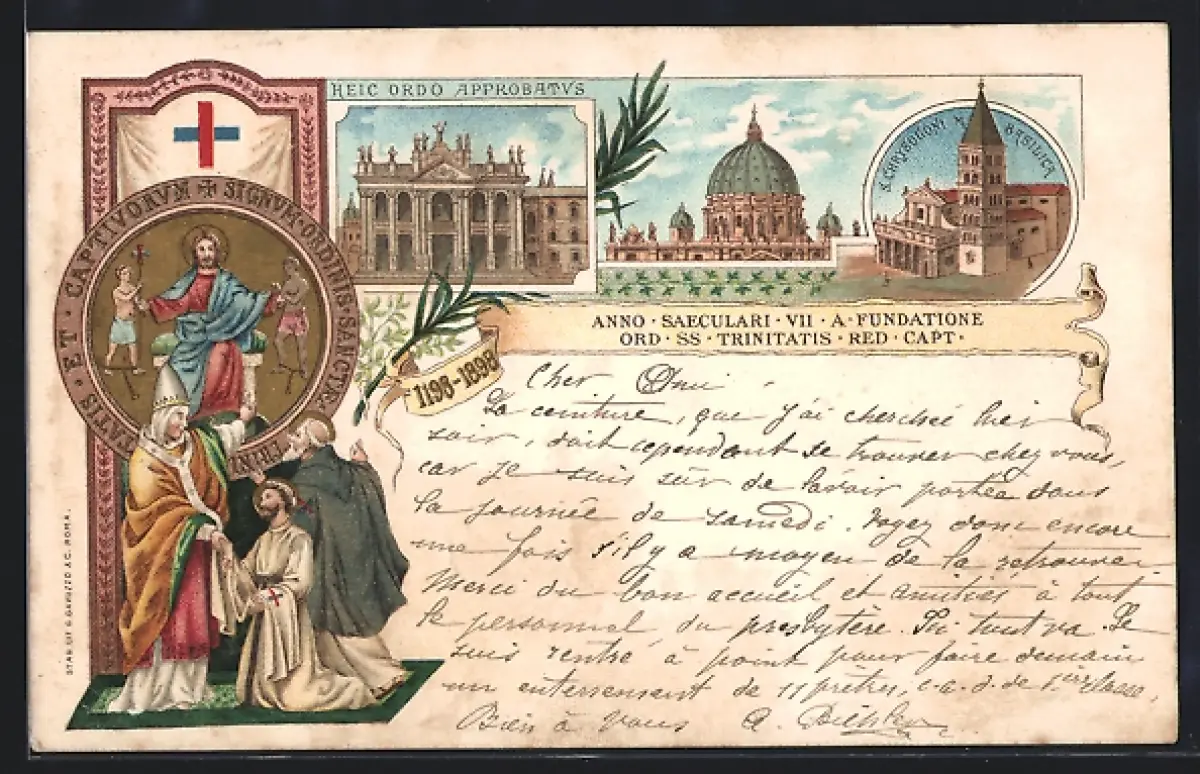 HEIC ORDO APPROBATVS
S. CHRYSOGONI M. BASILICA
SIGNVM · ORDINIS · SANCTAE · TRINITATIS · ET · CAPTIVORVM
ANNO · SAECULARI · VII · A · FUNDATIONE
ORD · SS · TRINITATIS · RED · CAPT ·
1198-1898
STAB. LIT. G. GARUZZO & C. ROMA.
Cher Ami
La ceinture, que j'ai cherchée hier
soir, doit cependant se trouver chez vous,
car je suis sûr de l'avoir portée dans
la journée de samedi. Voyez donc encore
une fois s'il y a moyen de la retrouver.
Merci du bon accueil et amitiés à tout
le personnel du presbytère. Ici tout va. Je
suis rentré à point pour faire demain
un enterrement de 11 prêtres, c.a.d. de 1ère classe.
Bien à vous A.